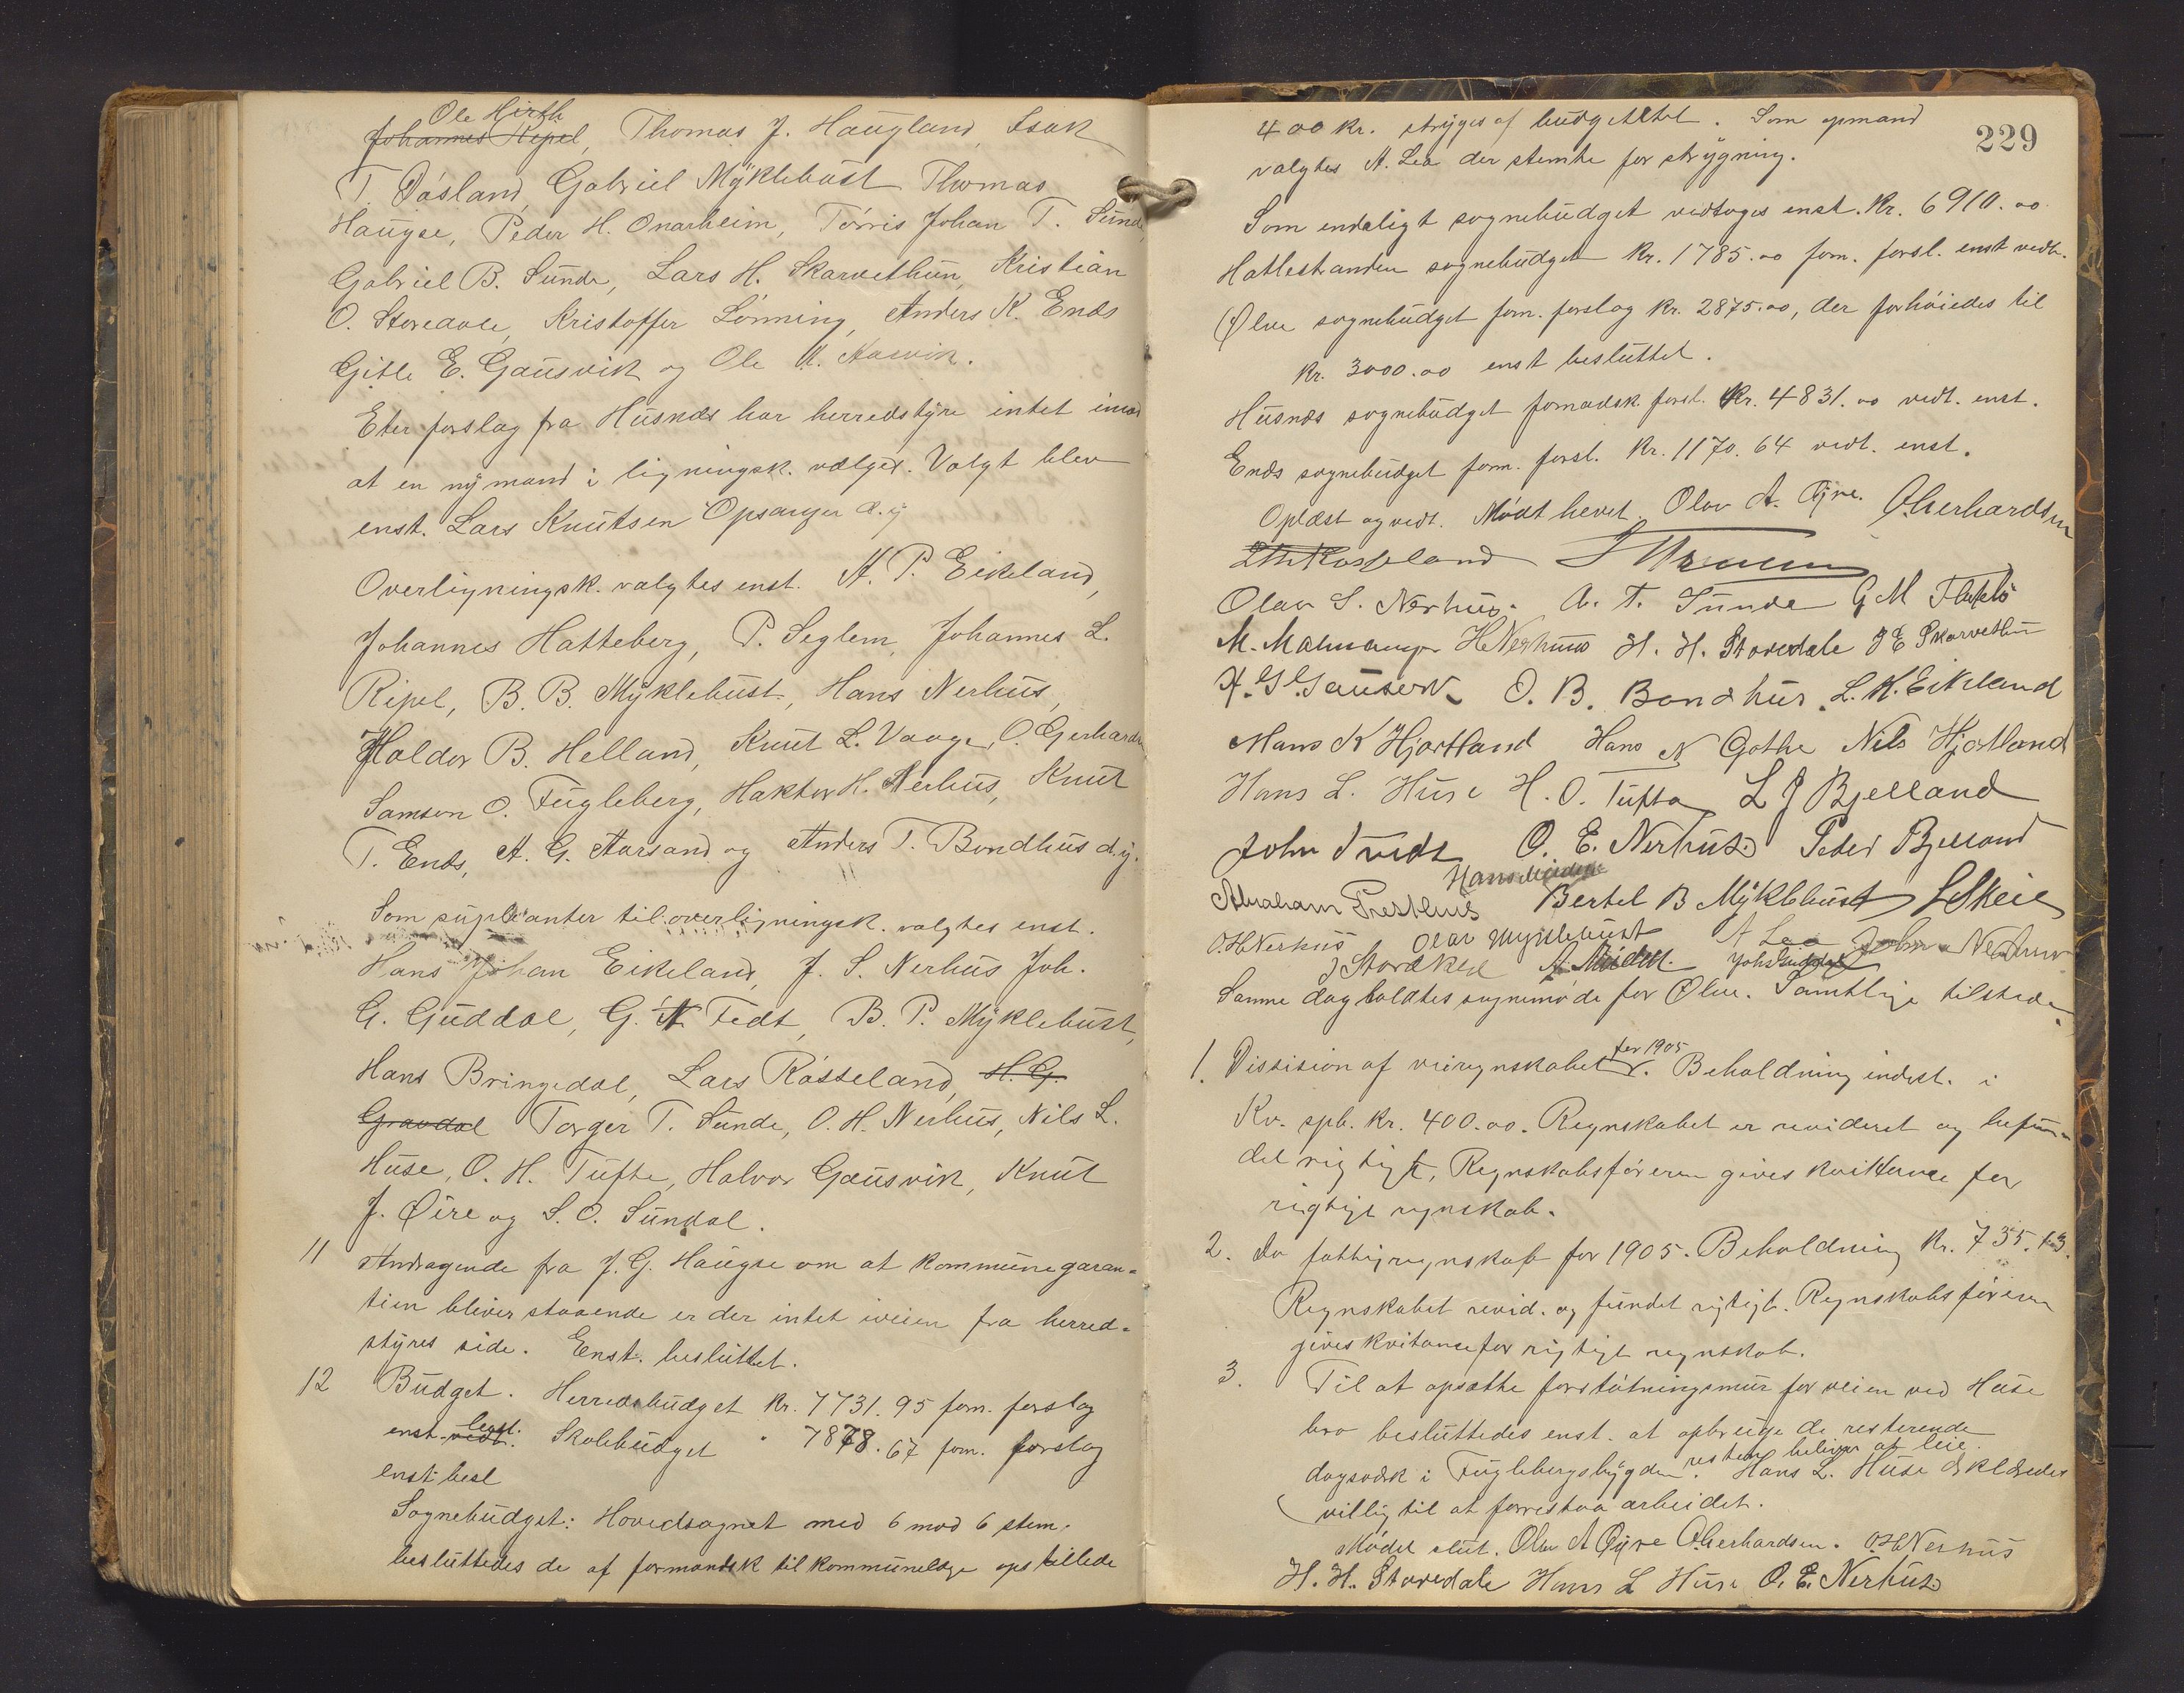 Ole Hirth
Johannes Ripel, Thomas J. Haugland, Isak
T. Dåsland, Gabriel Myklebust Thomas
Haugse, Peder H. Onarheim, Tørris Johan T. Sunde,
Gabriel B. Sunde, Lars H. Skarvethun, Kristian
O. Storedale, Kristoffer Lønning, Anders K. Enes
Gitle E. Gausvik og Ole
Eter forslag fra Husnæs har herredstyre intet imod
at en ny mand i ligningsk. vælges. Valgt blev
enst. Lars Knutsen Opsanger d.y
Overligningsk. valgtes enst. A. P. Eikeland,
Johannes Hatteberg, P. Seglem, Johannes L.
Ripel, B. B. Myklebust, Hans Nerhus,
Haldor B. Helland, Knut L. Vaage, O. Gerhards
Samson O. Fugleberg, Haktor H. Nerhus, Knut
T. Enes, A. G. Aarsand og Anders T. Bondhus d.y.
Som suplianter til overligningsk. valgtes enst.
Hans Johan Eikeland, J. S. Nerhus Joh.
G. Guddal, G. N. Tedt, B. P. Myklebust,
Hans Bringedal, Lars Røsseland, H. G.
Gravdal Torger T. Sunde, O. H. Nerhus, Nils L.
Huse, O. H. Tufte, Halvor Gausvik, Knut
J. Øire og S. O. Sundal.
11 Andragende fra J. G. Haugse om at kommunegaran-
tien bliver staaende er der intet iveien fra herred-
styres side. Enst. besluttet.
12 Budget. Herredsbudget Kr. 7731.95 form. forslag
enst. vedt. besl. Skolebudget " 7878.67 form. forslag
enst. besl
Sognebudget: Hovedsognet med 6 mod 6 stem.
besluttedes de af formandsk til kommunelæge opstillede
229
400 kr. stryges af budgettet. Som opmand
valgtes A. Lea der stemte for strygning.
Som endeligt sognebudget vedtoges enst. Kr. 6910.00
Hatlestranden sognebudget Kr. 1785.00 form. forsl. enst vedt.
Ølve sognebudget form. forslag Kr. 2875.00, der forhøiedes til
Kr. 3000.00 enst besluttet.
Husnæs sognebudget formadsk. forsl. Kr. 4831.00 vedt. enst.
Enes sognebudget form. forsl. Kr. 1170.64 vedt. enst.
Oplæst og vedt. Mødt hevet. Olav A. Øjre. O. Gerhardsen
Olav S. Nerhus. A. T. Sunde G M
M. Malmanger H Nerhuus H. H. Storedale J E Skarvethun
H. G. Gausvik O. B. Bondhus. L. K. Eikeland
Mans K Hjortland Hans N Gothe Nils Hjortland
Hans L. Huse H. O. Tufta L J Bjelland
John Tvedt O. E. Nerhus Peder Bjelland
Abraham Presthus Bertel B Myklebust L Skeie
O. H Nerhus Olav Myklebust A Lea Nerhus
Samme dag holdtes sognemøde for Ølve. Samtlige tilstede.
1. Dissision af veiregnskabet for 1905. Beholdning indest. i
Kv. spb. kr. 400.00. Regnskabet er revideret og befun-
det rigtigt, Regnskabsføreren gives kvitterance for
rigtigt regnskab.
2. Do fattigregnskab for 1905. Beholdning kr. 735.
Regnskabet revid. og fundet rigtigt. Regnskabsføreren
gives kvitance for rigtigt regnskab.
3. Til at opsætte forstøtningsmur for veien ved Huse
bro besluttedes enst. at opbruge de resterende
dagsværk i Fuglebergsbygden. resten beliges at leie. Hans L. Huse erklæredes
villig til at forrestaa arbeidet.
Mødet slut. Olav A Øyre O. Gerhardsen. O. H Nerhus
H. H. Storedale Hans L Huse O. E. Nerhus